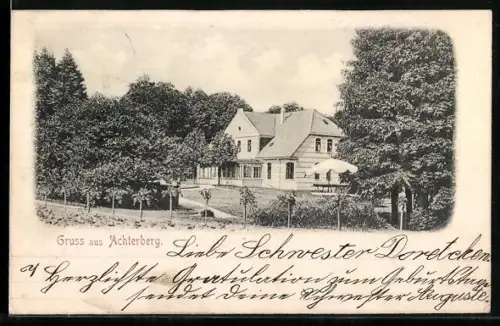 Gruss aus Achterberg.
Liebe Schwester Doretchen
Herzlichste Gratulation zum Geburtstage
sendet Deine Schwester Auguste.